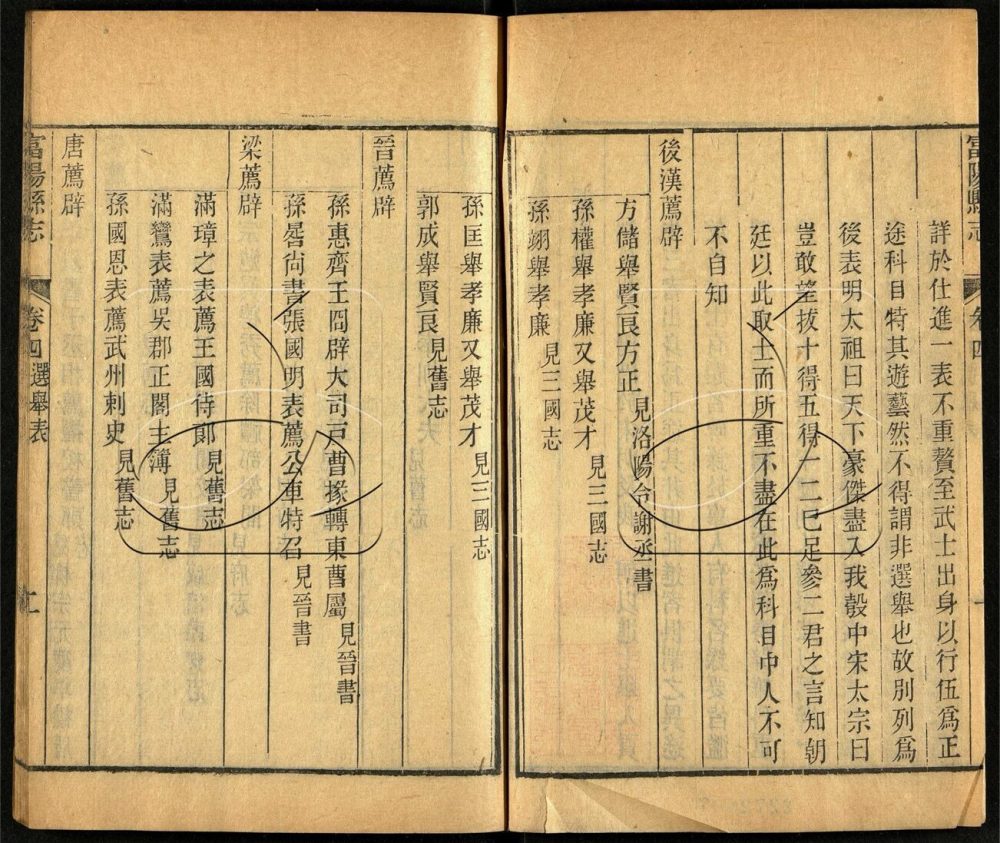 富陽縣志
卷四
詳於仕進一表不重贅至武士出身以行伍爲正
途科目特其遊藝然不得謂非選舉也故別列爲
後表明太祖曰天下豪傑盡入我彀中宋太宗曰
豈敢望拔十得五得一二已足參二君之言知朝
廷以此取士而所重不盡在此爲科目中人不可
不自知
後漢薦辟
方儲舉賢良方正見洛陽令謝丞書
孫權舉孝廉又舉茂才見三國志
孫翊舉孝廉見三國志
孫匡舉孝廉又舉茂才見三國志
郭成舉賢良見舊志
晉薦辟
孫惠齊王冏辟大司戸曹掾轉東曹屬見晉書
孫晷尙書張國明表薦公車特召見晉書
梁薦辟
滿璋之表薦王國待郎見舊志
滿鸞表薦吳郡正閣主簿見舊志
孫國恩表薦武州刺史見舊志
唐薦辟
富陽縣志
卷四選舉表